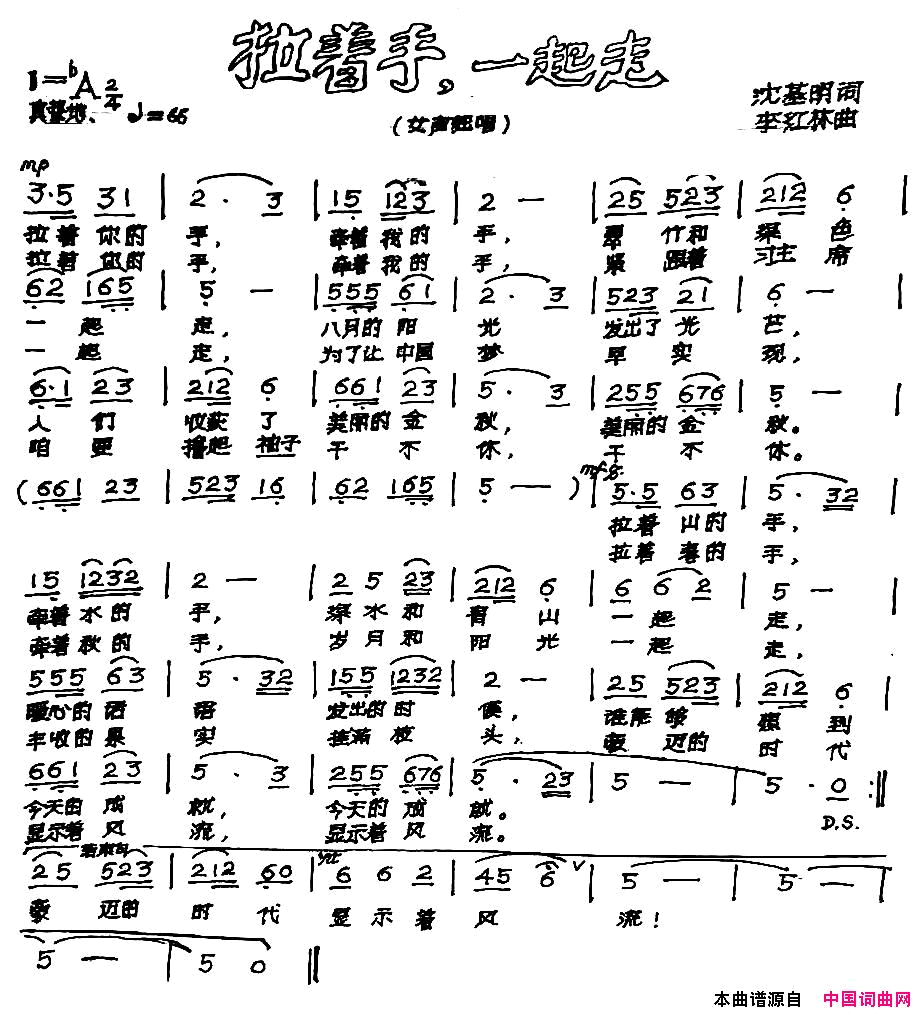 拉着手,一起走
1=♭A 2/4
真挚地、♩=66
(女声独唱)
沈基明词
李红林曲
mp
3·5 31 | 2 · 3 | 15 123 | 2 — | 25 523 | 212 6 |
拉着 你的 手, 牵着 我的 手, 翠 竹和 绿 色
拉着 你的 手, 牵着 我的 手, 紧 跟着 习主 席
62 165 | 5 — | 555 61 | 2 · 3 | 523 21 | 6 — |
一 起 走, 八月的 阳 光 发出了 光 芒,
一 起 走, 为了让 中国 梦 早 实 现,
6·1 23 | 212 6 | 661 23 | 5 · 3 | 255 676 | 5 — |
人 们 收获 了 美丽的 金 秋, 美丽的 金 秋。
咱 更 撸起 袖子 干 不 休, 干 不 休。
(661 23 | 523 16 | 62 165 | 5 — ) | 5·5 63 | 5 · 32 |
mf
拉着 山的 手,
拉着 春的 手,
15 1232 | 2 — | 2 5 23 | 212 6 | 6 6 2 | 5 — |
牵着 水的 手, 绿 水 和 青 山 一 起 走,
牵着 秋的 手, 岁 月 和 阳 光 一 起 走,
555 63 | 5 · 32 | 155 1232 | 2 — | 25 523 | 212 6 |
暖心的 话 语 发出的 时 候, 谁能 够 想 到
丰收的 果 实 挂满 枝 头, 豪 迈的 时 代
661 23 | 5 · 3 | 255 676 | 5 · 23 | 5 — | 5 · 0 :||
今天的 成 就, 今天的 成 就。
显示着 风 流, 显示着 风 流。
D.S.
结束句
25 523 | 212 60 | 6 6 2 | 45 6 | 5 — | 5 — |
豪 迈的 时 代 显 示 着 风 流!
5 — | 5 0 ||
本曲谱源自 中国词曲网